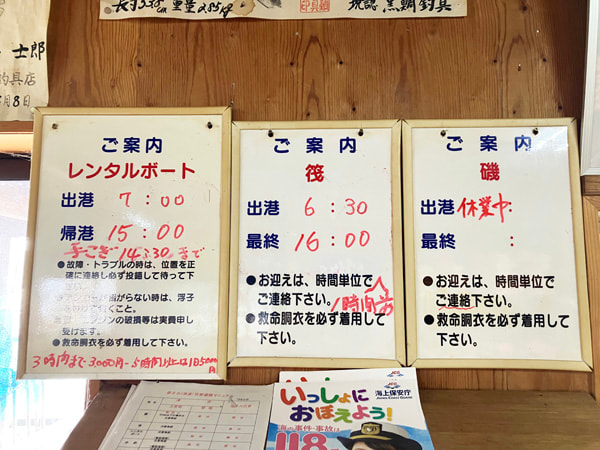 長寸53cm 重量2.85kg
魚拓
現認 黒鯛釣具
士郎
釣具店
月8日
ご案内
レンタルボート
出港 7:00
帰港 15:00
手こぎ 14:30まで
●故障・トラブルの時は、位置を正
確に連絡し必ず投錨して待って下
がらない時は、浮子
行くこと。
の破損等は実費申し
受けます。
●救命胴衣を必ず着用して下さい。
3時間まで3,000円
ご案内
筏
出港 6:30
最終 16:00
●お迎えは、時間単位で
ご連絡下さい。
1時間前
●救命胴衣を必ず着用して
下さい。
ご案内
磯
出港 休業中:
最終 :
●お迎えは、時間単位で
ご連絡下さい。
●救命胴衣を必ず着用して
下さい。
いっしょに
おぼえよう!
海の事件・事故は
118
海上保安庁
JAPAN COAST GUARD